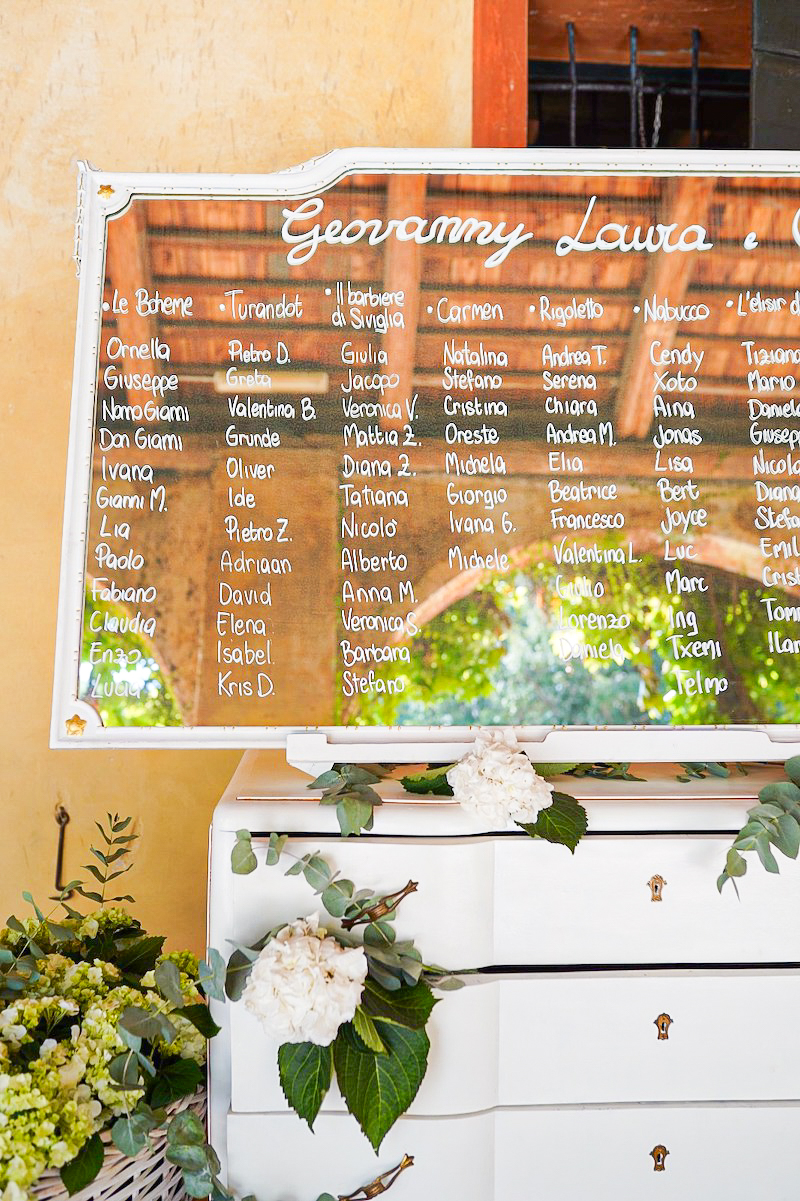 Geovanny Laura e
• Le Boheme
Ornella
Giuseppe
Nonno Gianni
Don Gianni
Ivana
Gianni M.
Lia
Paolo
Fabiano
Claudia
Enzo
Lucia
• Turandot
Pietro D.
Greta
Valentina B.
Grunde
Oliver
Ide
Pietro Z.
Adriaan
David
Elena
Isabel
Kris D.
• Il barbiere
di Siviglia
Giulia
Jacopo
Veronica V.
Mattia Z.
Diana Z.
Tatiana
Nicolò
Alberto
Anna M.
Veronica S.
Barbara
Stefano
• Carmen
Natalina
Stefano
Cristina
Oreste
Michela
Giorgio
Ivana G.
Michele
• Rigoletto
Andrea T.
Serena
Chiara
Andrea M.
Elia
Beatrice
Francesco
Valentina L.
Giulio
Lorenzo
Daniela
• Nabucco
Cendy
Xoto
Aina
Jonas
Lisa
Bert
Joyce
Luc
Marc
Ing
Txemi
Telmo
• L'elisir d
Tiziana
Mario
Daniela
Giusepp
Nicola
Diana
Stefa
Emil
Crist
Tom
Ilar